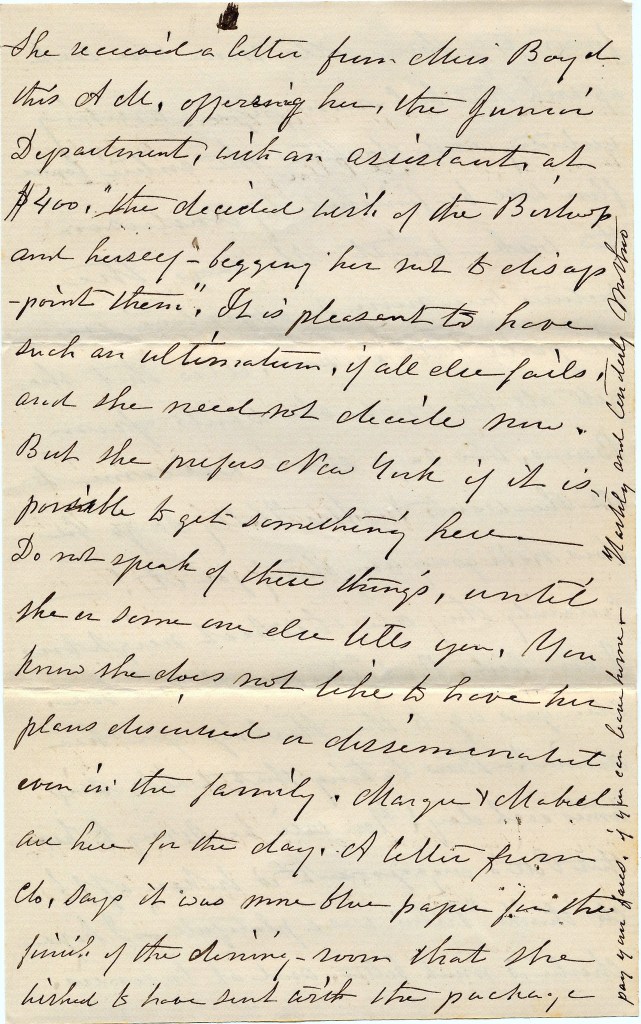 She received a letter from Miss Boyd
this A M, offering her, the Junior
Department, with an assistant, at
$400. "the decided wish of the Bishop
and herself - begging her not to disap
-point them". It is pleasant to have
such an ultimatum, if all else fails,
and she need not decide now.
But she prefers New York if it is,
possible to get something here -
Do not speak of these things, until
she or some one else tells you. You
know she does not like to have her
plans discussed or disseminated
even in the family. Margie & Mabel
are here for the day. A letter from
Clo, says it was more blue paper "for" the
finish of the dining-room that she
wished to have sent with the package
pay your fares, if you can leave home - Hastily and tenderly Mother